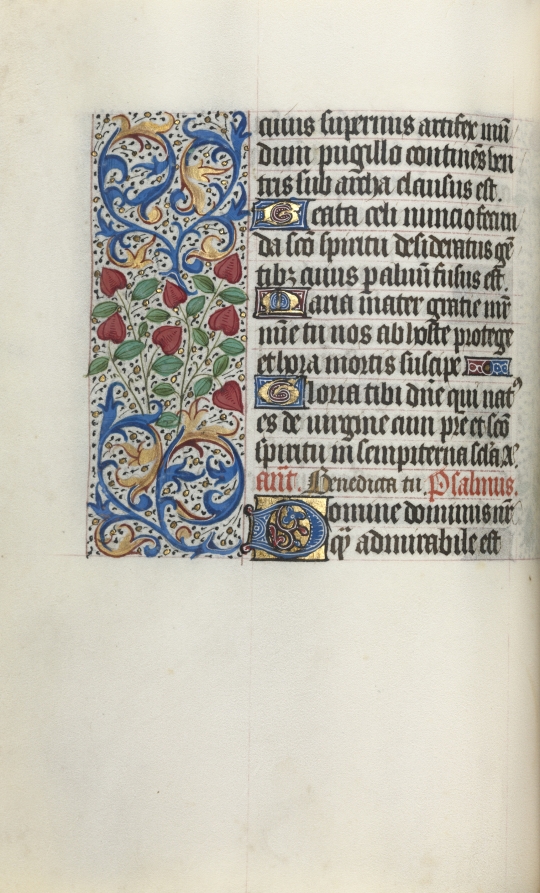 cuius supernus artifex mū
dum pugillo continēs ven
tris sub archa clausus est.
Beata celi nuncio fecun
da sco spiritu desideratus gē
tibꝫ cuius p aluū fusus est.
Maria mater gratie mr̄
mīe tu nos ab hoste protege
et hora mortis suscipe
Gloria tibi dn̄e qui natꝰ
es de uirgine cum pr̄e et sc̄o
spiritu in sempiterna sc̄la A.
an̄t. Benedicta tu Psalmus.
Domine dominus nr̄
q̄ʒ admirabile est